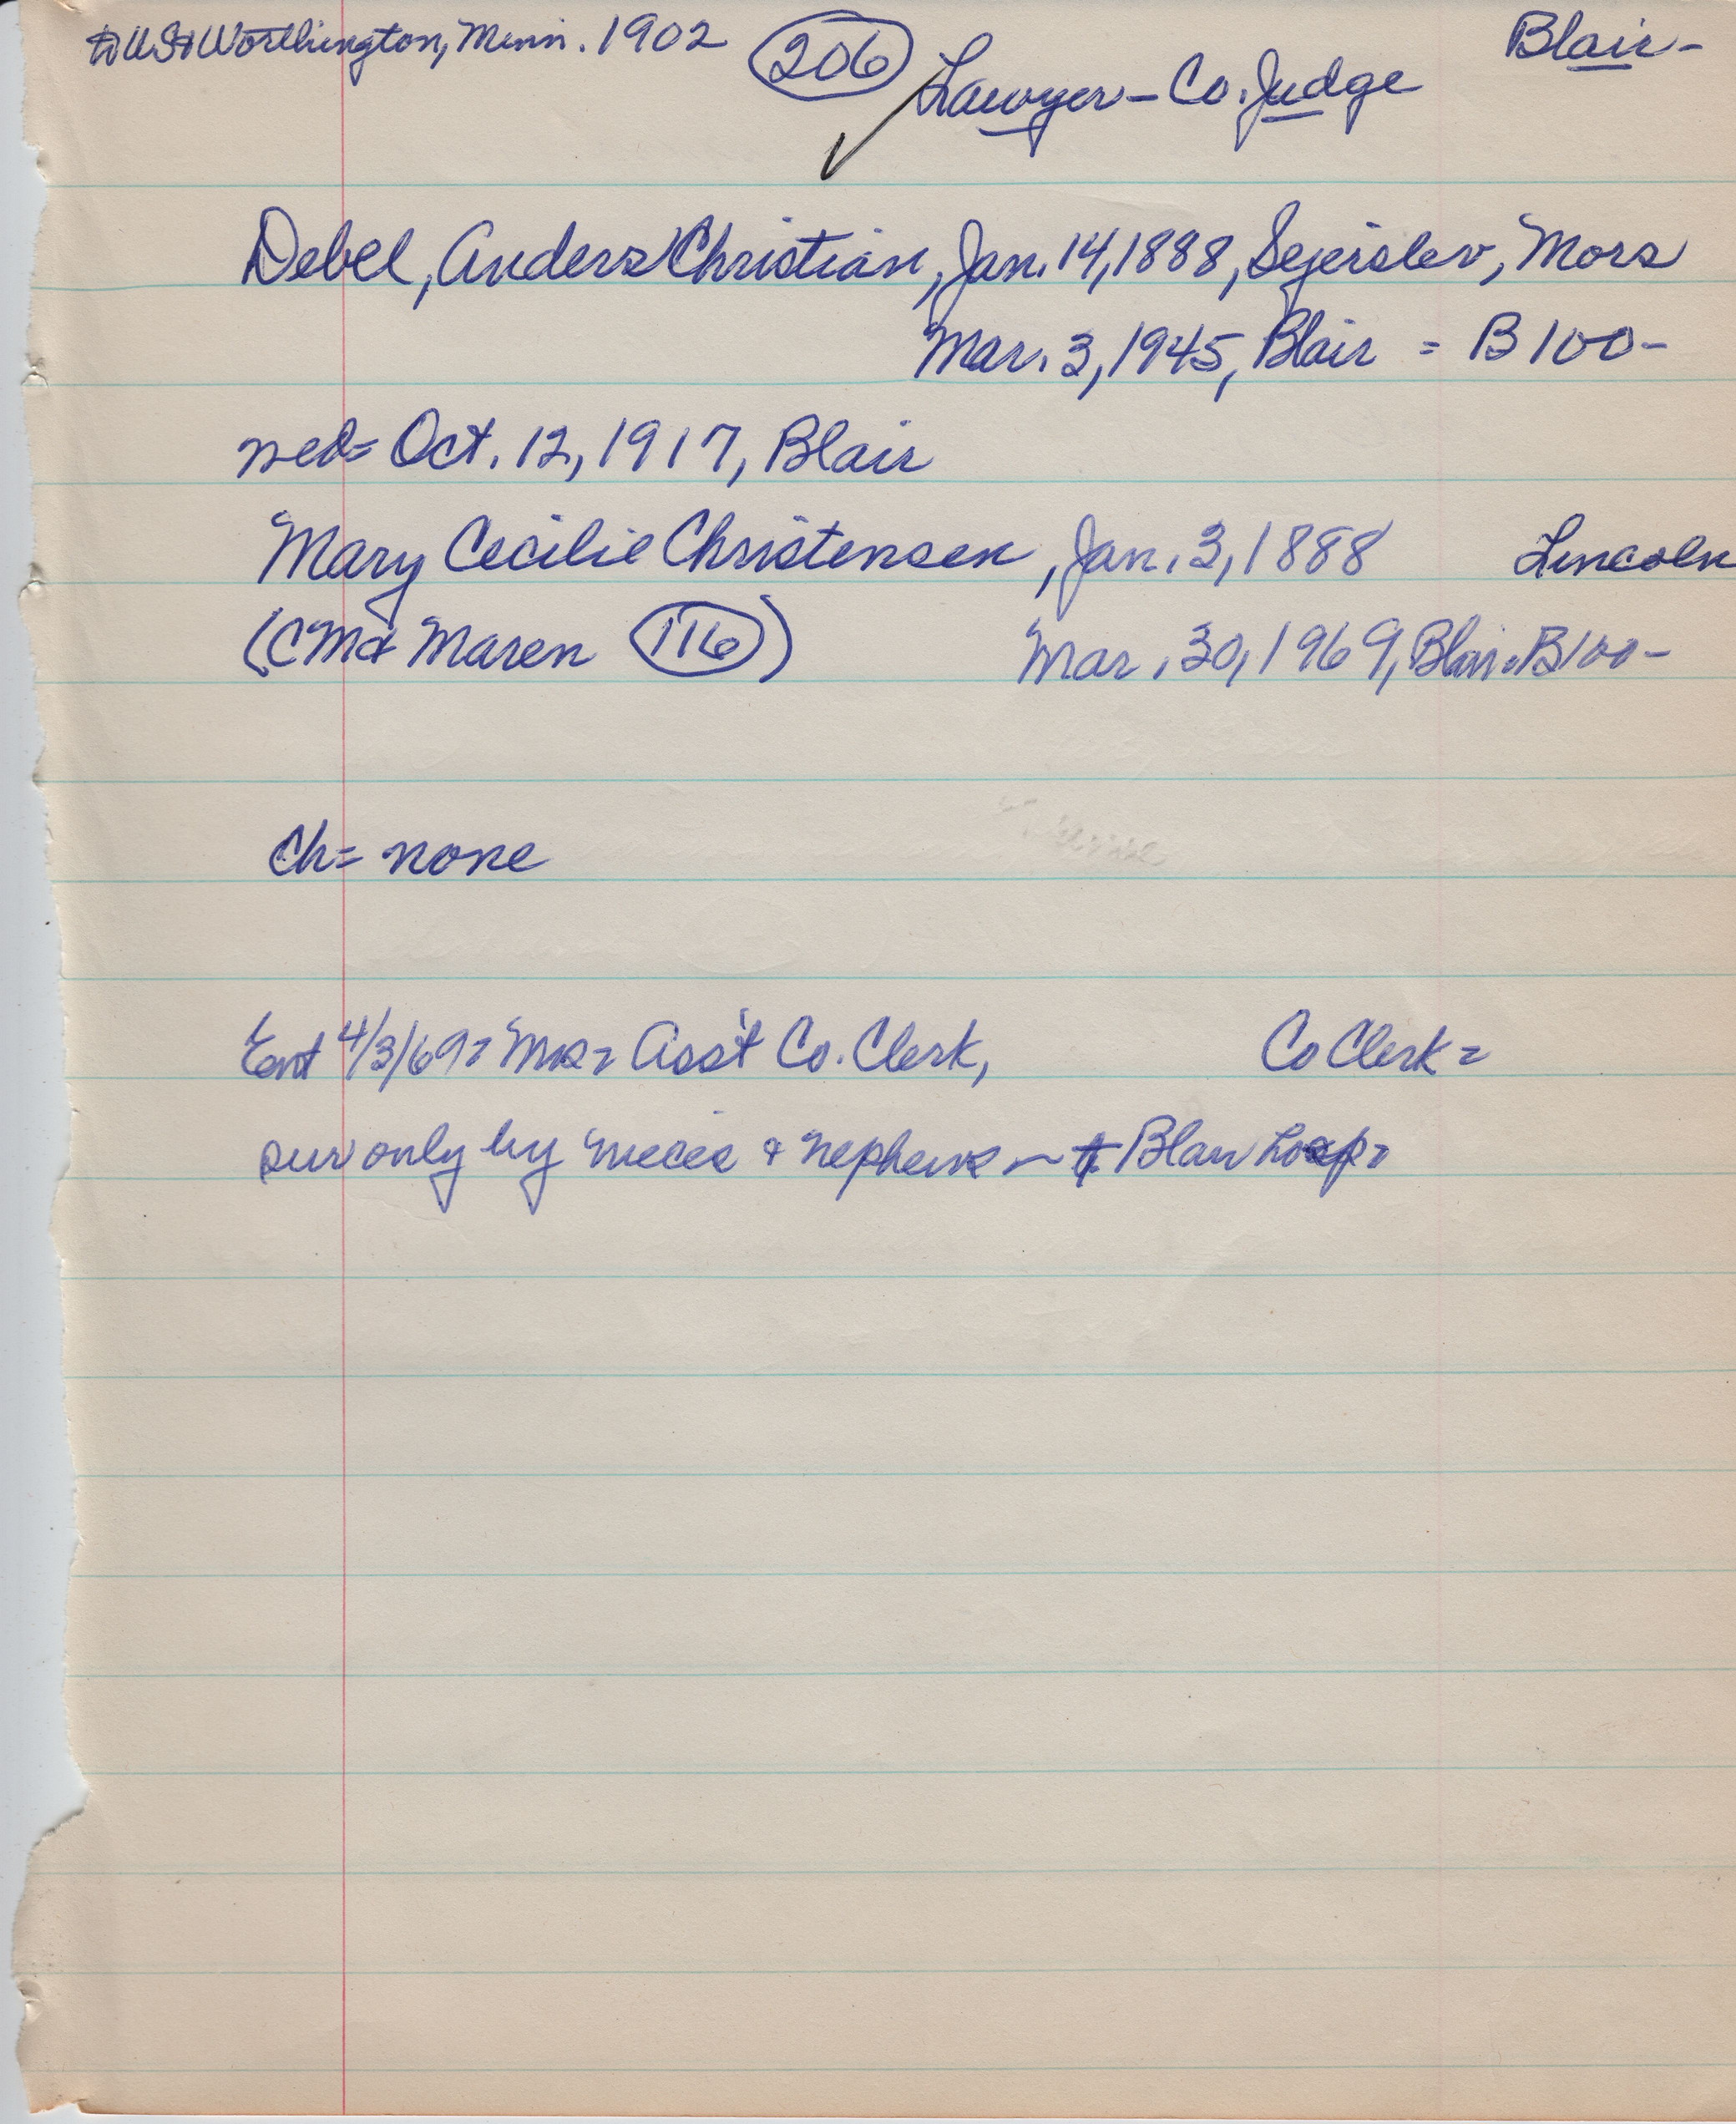 to US & Worthington, Minn. 1902 206 Blair-
Lawyer - Co. Judge
Debel, Anders Christian, Jan. 14, 1888, Sejerslev, Mors
Mar. 3, 1945, Blair = B 100-
wed= Oct. 12, 1917, Blair
Mary Cecilie Christensen, Jan. 3, 1888 Lincoln
(CM & Maren 116) Mar. 30, 1969, Blair = B 100-
Ch= none
Ent 4/3/69= Mrs= Ass't Co. Clerk, Co Clerk=
sur only by nieces & nephews - Blair Hosp=